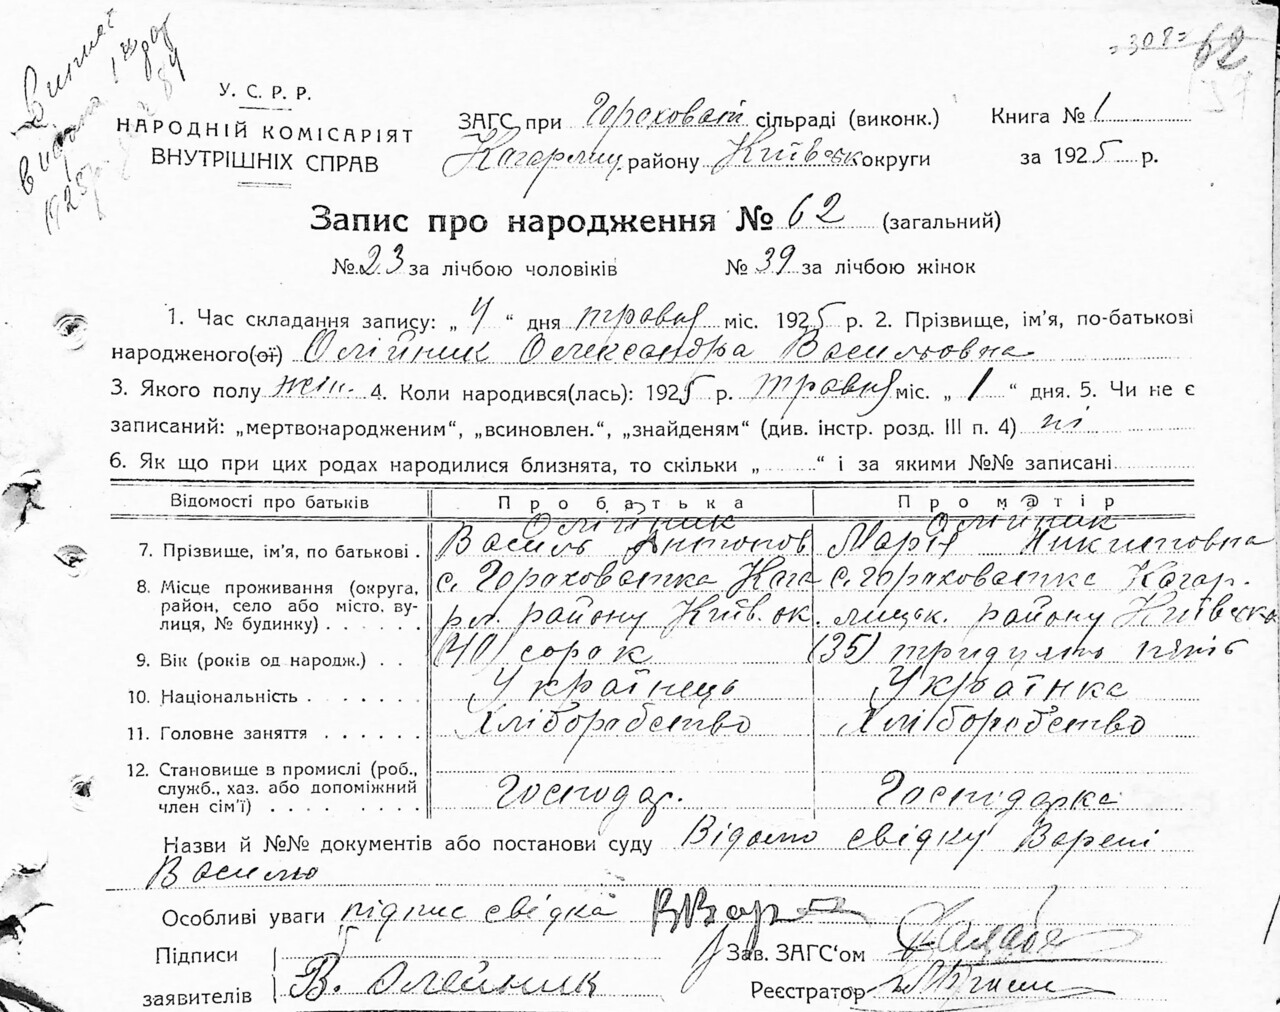 =308= 62
57
Виписка
видана
1925 р.
У. С. Р. Р.
НАРОДНІЙ КОМІСАРІЯТ
ВНУТРІШНІХ СПРАВ
ЗАГС при Гороховат сільраді (виконк.) Книга № 1
Кагарлиц. району Київськ округи за 1925 р.
Запис про народження № 62 (загальний)
№ 23 за лічбою чоловіків № 39 за лічбою жінок
1. Час складання запису: „ 4 “ дня травня міс. 1925 р. 2. Прізвище, ім'я, по-батькові
народженого(ої) Олійник Олександра Васильовна
3. Якого полу жін. 4. Коли народився(лась): 1925 р. травня міс. „ 1 “ дня. 5. Чи не є
записаний: „мертвонародженим“, „всиновлен.“, „знайденям“ (див. інстр. розд. III п. 4) ні
6. Як що при цих родах народилися близнята, то скільки „ “ і за якими №№ записані
Відомості про батьків Про батька Про матір
Олійник Олійник
7. Прізвище, ім'я, по батькові . Василь Антонов Марія Никиповна
8. Місце проживання (округа, с. Гороховатка Кага с. Гороховатка Кагар.
район, село або місто, ву-
лиця, № будинку) . . . . . рл. району Київ. ок. лицьк. району Київська
9. Вік (років од народж.) . . (40) сорок (35) тридцять пять
10. Національність . . . . . . Українець Українка
11. Головне заняття . . . . . . Хліборобство Хліборобство
12. Становище в промислі (роб.,
служб., хаз. або допоміжний
член сім'ї) . . . . . . . . Господар. Господарка
Назви й №№ документів або постанови суду Відомо свідку Варені
Василю
Особливі уваги підпис свідка ВВар
Підписи Зав. ЗАГС'ом
заявителів В. Олейник Реєстратор